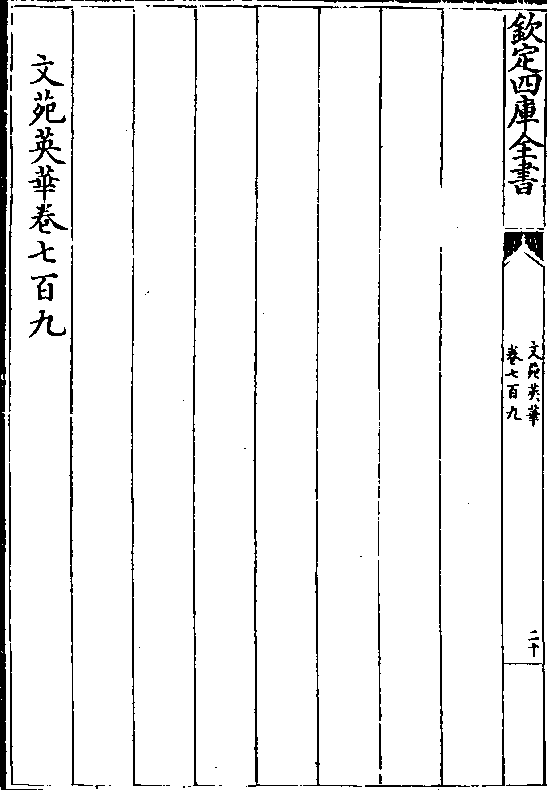 欽定四庫全書
文苑英華
卷七百九
二十
文苑英華卷七百九